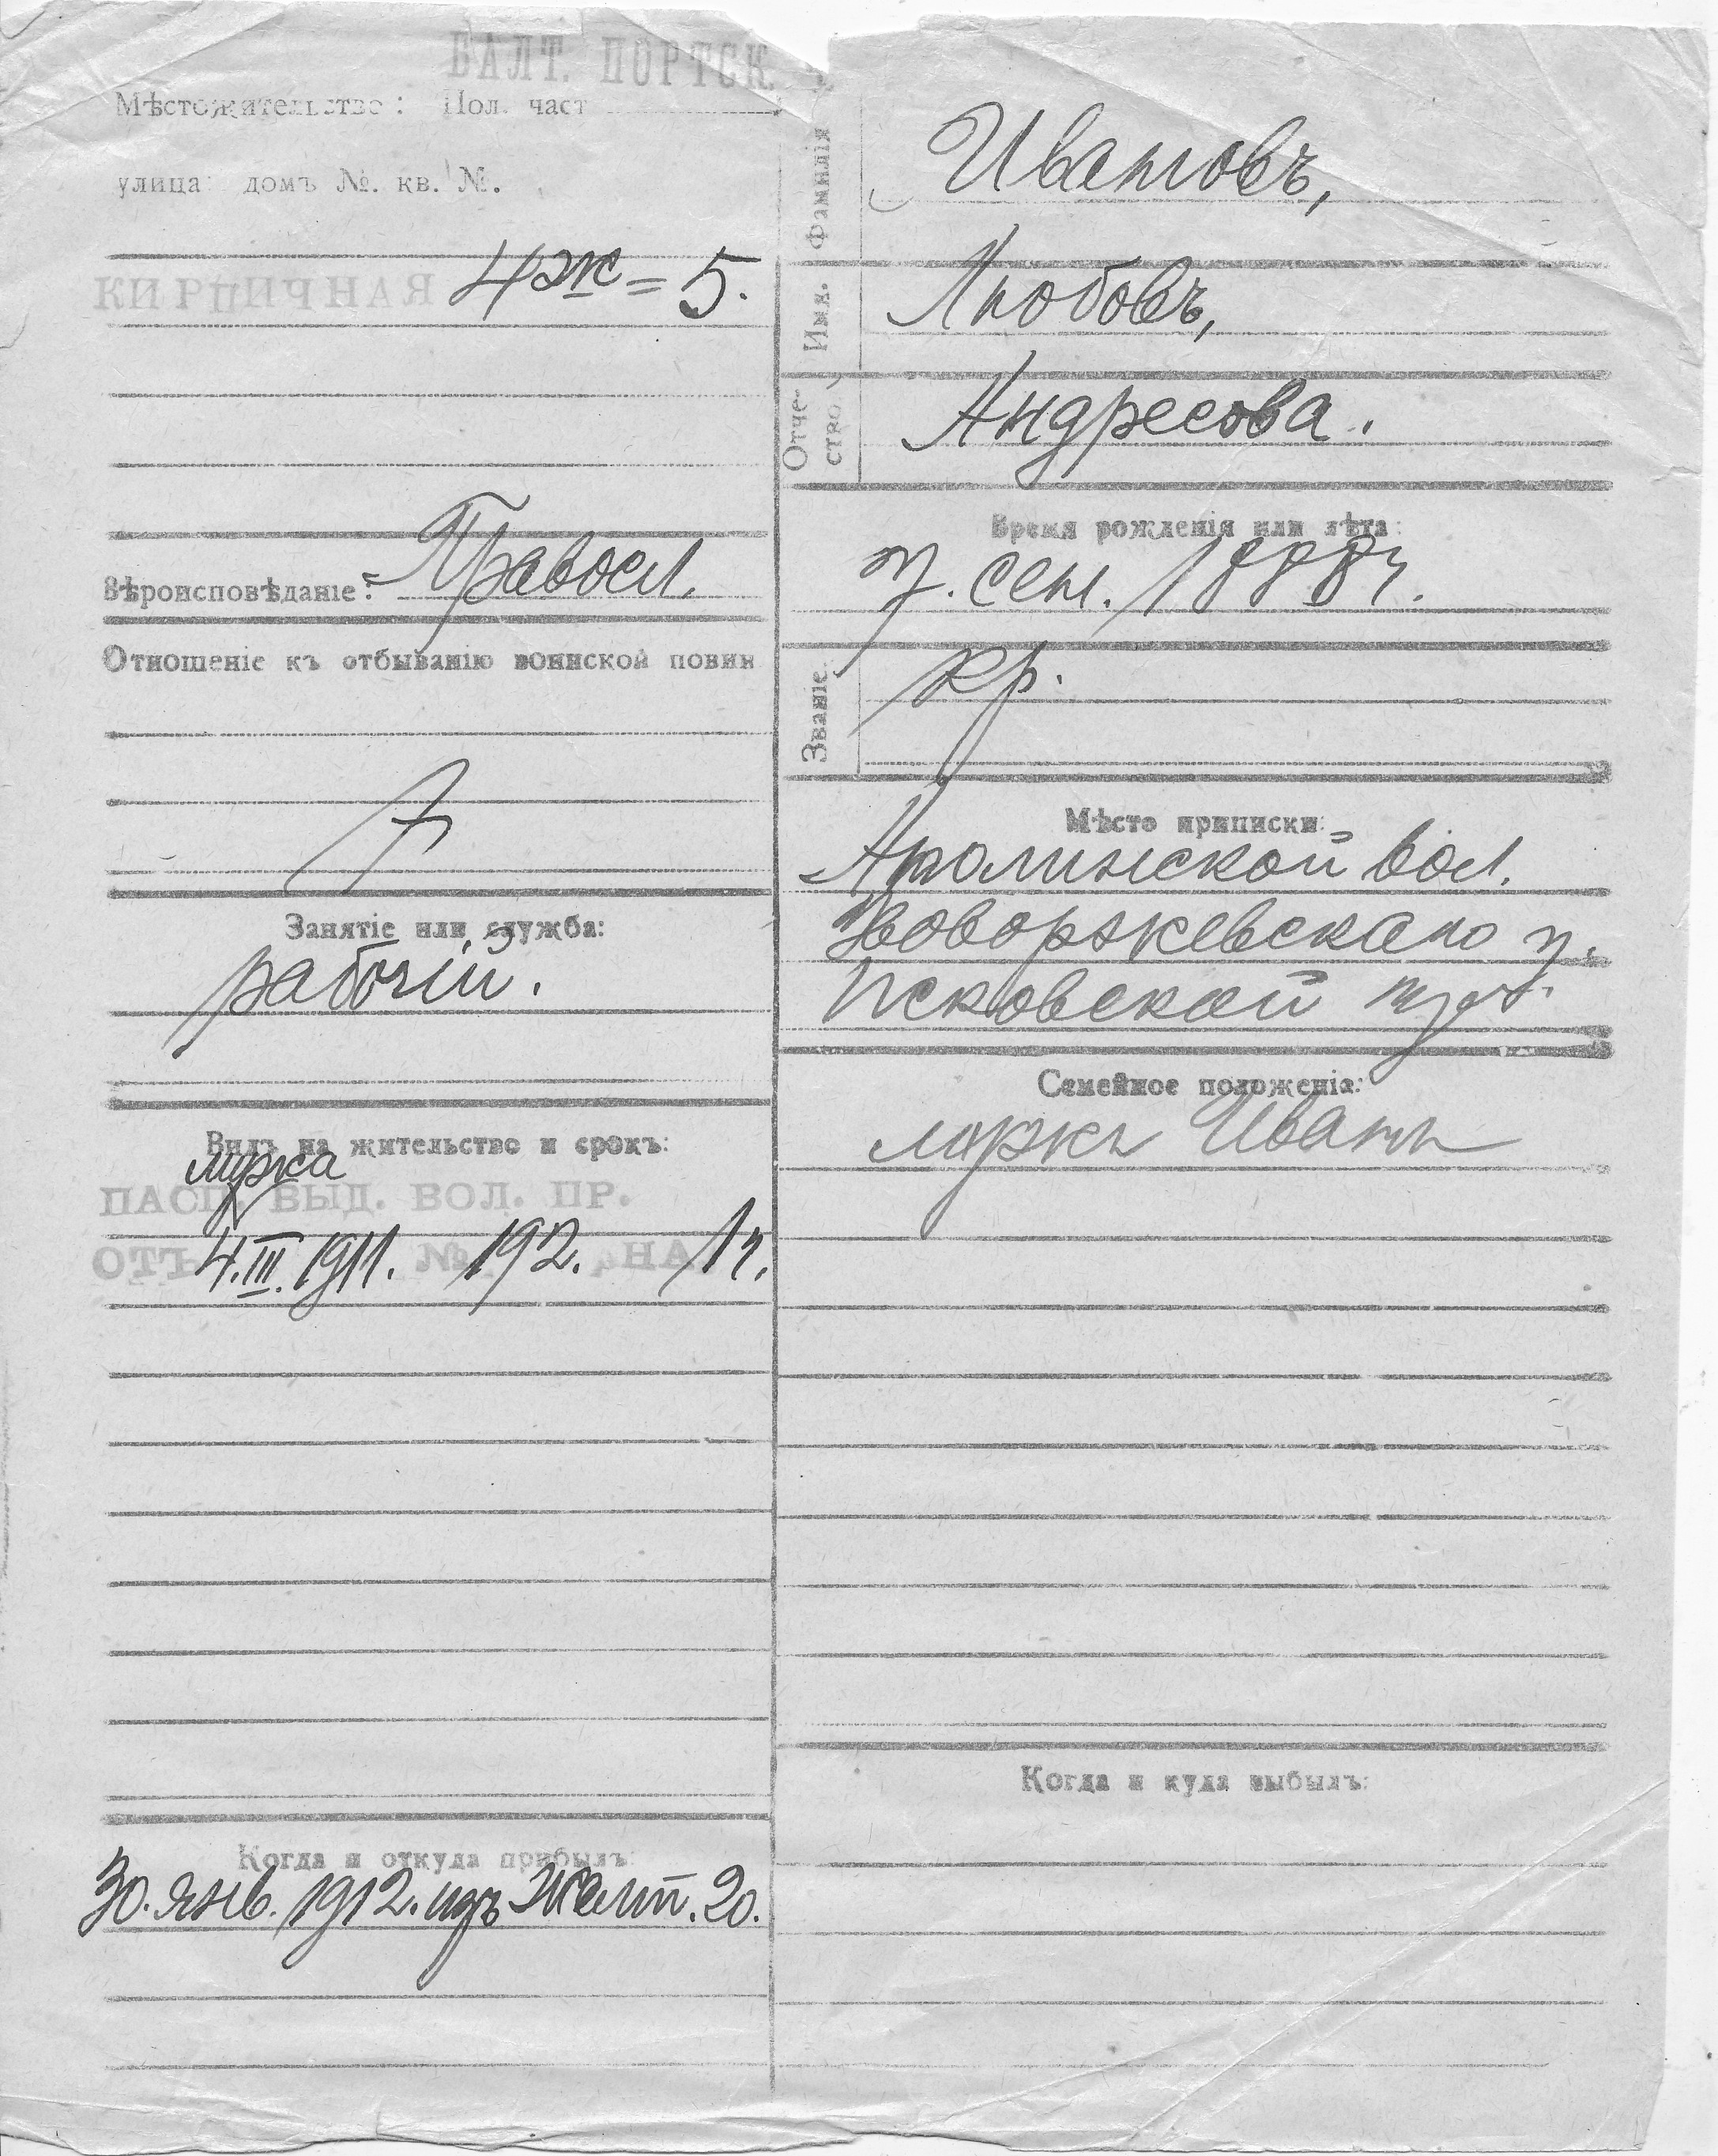 БАЛТ. ПОРТСК.
Мѣстожительство: Пол. част
улица: домъ №. кв. №.
КИРПИЧНАЯ 4 ж = 5.
Вѣроисповѣданіе: Правосл.
Отношеніе къ отбыванію воинской повин
Занятіе или служба:
рабочій.
Видъ на жительство и срокъ:
мужа
ПАСП. ВЫД. ВОЛ. ПР.
ОТЪ 4.III.1911. № 192. НА 1 г.
Когда и откуда прибылъ:
30. янв. 1912. изъ Желт. 20.
Фамилія Ивановъ,
Имя. Любовь,
Отче-
ство. Андреева.
Время рожденія или лѣта:
7. сен. 1888 г.
Званіе. кр.
Мѣсто приписки:
вол.
Новоржевскаго у.
Псковской губ.
Семейное положеніе:
мужъ Иванъ
Когда и куда выбылъ: